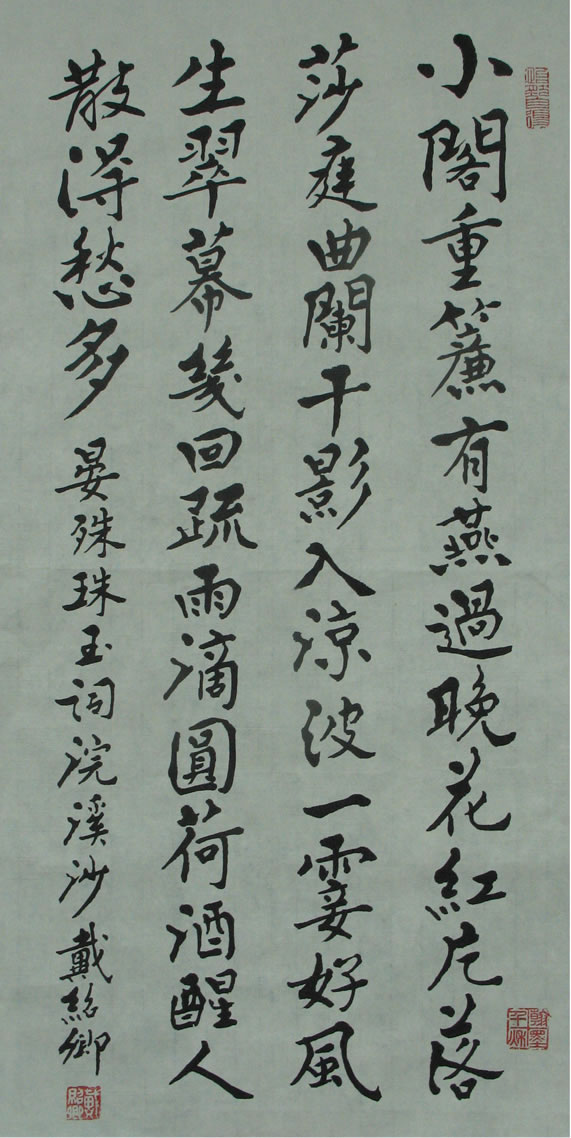 小閣重簾有燕過晚花紅片落
莎庭曲闌干影入涼波一霎好風
生翠幕幾回疏雨滴圓荷酒醒人
散得愁多
晏殊珠玉詞浣溪沙 戴紹卿